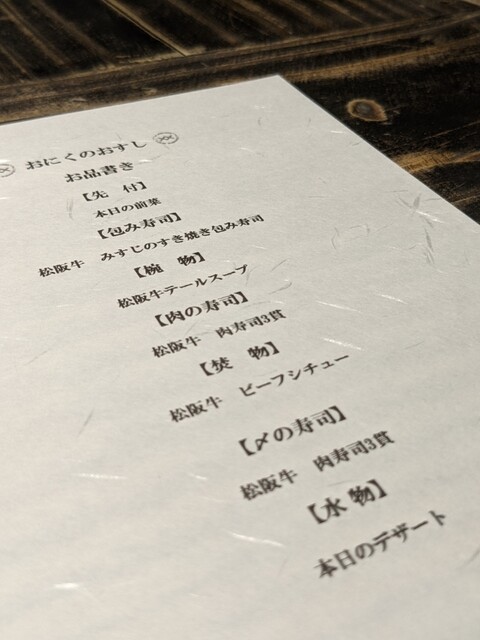 おにくのおすし
お品書き
【先 付】
本日の前菜
【包み寿司】
松阪牛 みすじのすき焼き包み寿司
【椀 物】
松阪牛テールスープ
【肉の寿司】
松阪牛 肉寿司3貫
【焚 物】
松阪牛 ビーフシチュー
【〆の寿司】
松阪牛 肉寿司3貫
【水 物】
本日のデザート